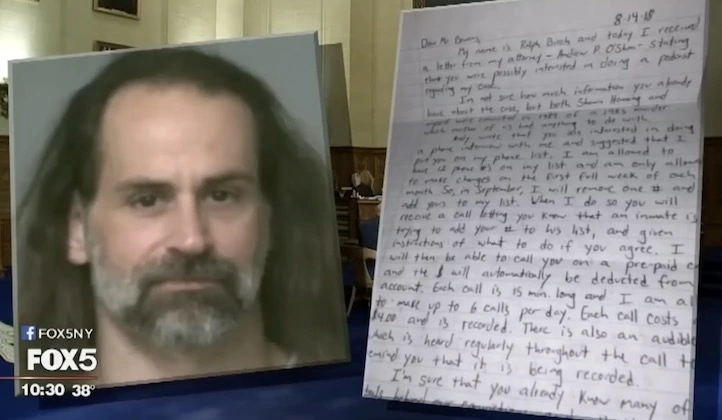 8-14-18
Dear Mr
My name is Ralph Birch and today I received
a letter from my attorney - Andrew P. O'Shea - stating
that you were possibly interested in doing a podcast
regarding my case.
I'm not sure how much information you already
have about the case, but both Shawn Henning and
myself were convicted in 1989 of a 1985 murder
which neither of us had anything to do with.
wrote that you are interested in doing
a phone interview with me and suggested that I
put you on my phone list. I am allowed to
have 12 phone #s on my list and am only allowed
to make changes on the first full week of each
month So, in September, I will remove one # and
add yours to my list. When I do so you will
receive a call letting you know that an inmate is
trying to add your # to his list, and given
instructions of what to do if you agree. I
will then be able to call you on a pre-paid
and the $ will automatically be deducted from
account. Each call is 15 min. long and I am al
to make up to 6 calls per day. Each call costs
$4.00 and is recorded. There is also an audible
which is heard regularly throughout the call t
remind you that it is being recorded.
I'm sure that you already know many of
f FOX5NY
FOX5
10:30 38°